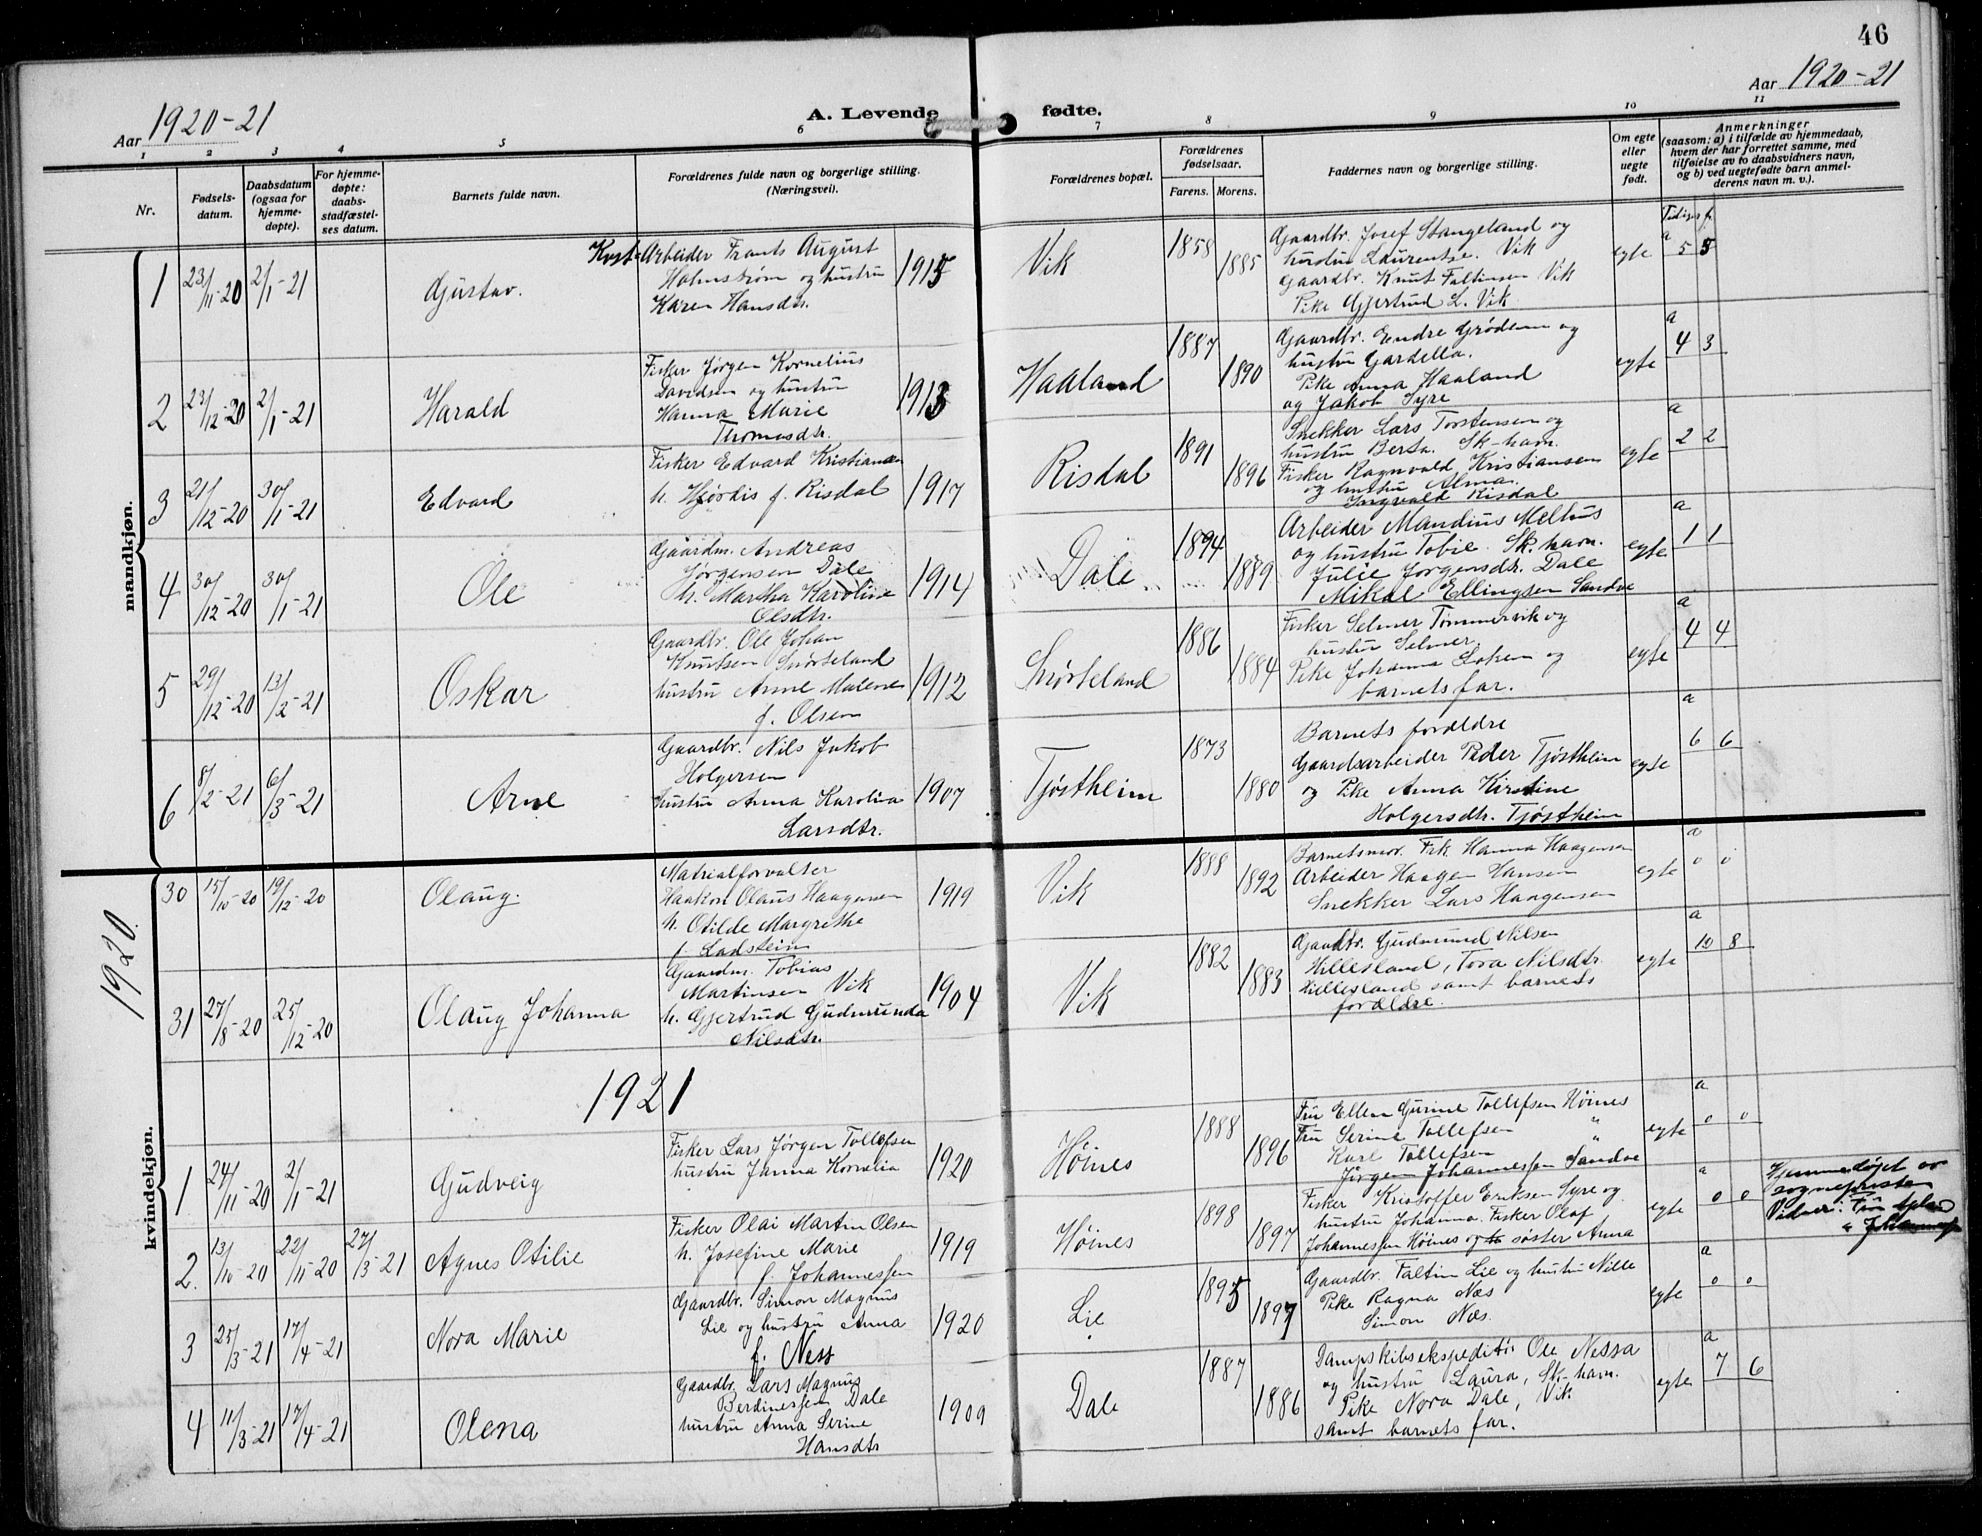 46
Aar 1920-21
A. Levende fødte.
Aar 1920-21
1 2 3 4 5 6 7 8 9 10 11
Nr.
Fødsels-
datum.
Daabsdatum
(ogsaa for
hjemme-
døpte).
For hjemme-
døpte:
daabs-
stadfæstel-
ses datum.
Barnets fulde navn.
Forældrenes fulde navn og borgerlige stilling.
(Næringsvei).
Forældrenes bopæl.
Forældrenes
fødselsaar.
Farens. Morens.
Faddernes navn og borgerlige stilling.
Om egte
eller
uegte
født.
Anmerkninger
(saasom: a) i tilfælde av hjemmedaab,
hvem der har forrettet samme, med
tilføielse av to daabsvidners navn,
og b) ved uegtefødte barn anmel-
derens navn m. v.).
mandkjøn.
1 23/11-20 2/1-21 Gustav.
Kyst-Arbeider Frants August
Holmstrøm og hustru
Karen Hansdtr.
1915 Vik 1858 1885
Gaardbr. Josef Stangeland og
hustru Laurentse. Vik
Gaardbr. Knut Faltinsen Vik
Pike Gjertrud L. Vik
egte
a
5 5
2 23/12-20 2/1-21 Harald
Fisker Jørgen Kornelius
Davidsen og hustru
Hanna Marie
Thomasdtr.
1913 Haaland 1887 1890
Gaardbr. Endre Grødem og
hustru Gardella.
Pike Anna Haaland
og Jakob Syre
egte
a
4 3
3 21/12-20 30/1-21 Edvard
Fisker Edvard Kristiansen
h. Hjørdis f. Risdal
1917 Risdal 1891 1896
Snekker Lars Torstensen og
hustru Berta. Sk-havn.
Fisker Ragnvald Kristiansen
og hustru Alma.
Ingvald Risdal
egte
a
2 2
4 30/12-20 30/1-21 Ole
Gaardm. Andreas
Jørgensen Dale
h. Martha Karoline
Olsdtr.
1914 Dale 1894 1889
Arbeider Mandius Melhus
og hustru Tobie. Sk. havn.
Julie Jørgensdtr. Dale
Mikal Ellingsen Sandve
egte
a
1 1
5 29/12-20 13/2-21 Oskar
Gaardbr. Ole Johan
Knutsen Snørteland
hustru Anne Malene
f. Olsen
1912 Snørteland 1886 1884
Fisker Selmer Tømmervik og
hustru Selmer
Pike Johanna Loken og
barnets far.
egte
a
4 4
6 8/2-21 6/3-21 Arne
Gaardbr. Nils Jakob
Holgersen
hustru Anna Karolina
Larsdtr.
1907 Tjøstheim 1873 1880
Barnets forældre
Gaardsarbeider Peder Tjøstheim
og Pike Anna Kirstine
Holgersdtr. Tjøstheim
egte
a
6 6
kvindekjøn.
1920.
30 15/10-20 19/12-20 Olaug.
Matrialforvalter
Haakon Olaus Haagensen
h. Otilde Margrethe
f. Ladstein
1919 Vik 1888 1892
Barnetsmor. Frk. Hanna Haagensen
Arbeider Haagen Hansen
Snekker Lars Haagensen
egte
a
0 0
31 27/8-20 25/12-20 Olaug Johanna
Gaardm. Tobias
Martinsen Vik
h. Gjertrud Gudmunda
Nilsdtr.
1904 Vik 1882 1883
Gaardbr. Gudmund Nilsen
Hillesland, Tora Nilsdtr.
Hillesland samt barnets
forældre.
egte
a
10 8
1921
1 24/11-20 2/1-21 Gudveig
Fisker Lars Jørgen Tollefsen
hustru Janna Kornelia
1920 Høines 1888 1896
Fru Ellen Gurine Tollefsen Høines
Fru Serine Tollefsen "
Karl Tollefsen "
Jørgen Johannessen Sandve
egte
a
0 0
2. 13/10-20 22/11-20 27/3-21 Agnes Otilie
Fisker Olai Martin Olsen
h. Josefine Marie
f. Johannessen
1919 Høines 1898 1897
Fisker Kristoffer Eriksen Syre og
hustru Johanna. Fisker Olaf
Johannessen Høines og søster Anna
egte
a
0 0
Hjemmedøpt av
sognepresten
Vidner: Fru
3 25/3-21 17/4-21 Nora Marie
Gaardbr. Simon Magnus
Lie og hustru Anna
f. Ness
1920 Lie 1895 1897
Gaardbr. Faltin Lie og hustru Nille
Pike Ragna Næs
Simon Næs.
egte
a
0 0
4 11/3-21 17/4-21 Olena
Gaardbr. Lars Magnus
Berdinessen Dale
hustru Anna Serine
Hansdtr
1909 Dale 1887 1886
Dampskibsekspeditør Ole Nessa
og hustru Laura, Sk-havn.
Pike Nora Dale, Vik
samt barnets far.
egte
a
7 6